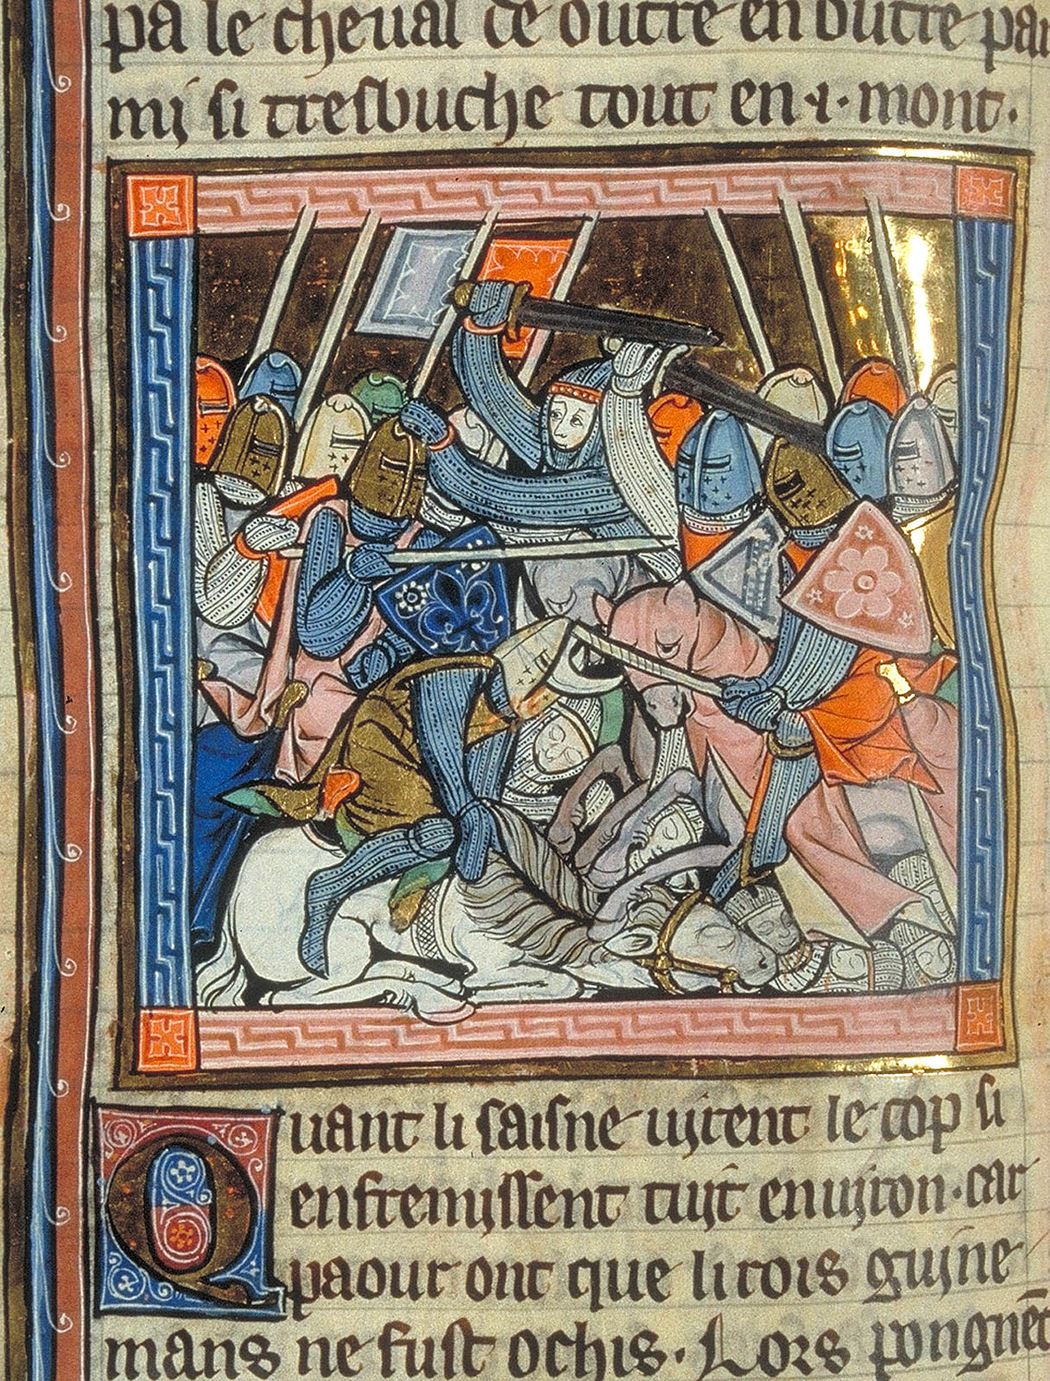 pa le cheual de outre en outre par
mi si tresbuche tout en .i. mont.
Quant li saisne uirent le cop si
enfremissent tuit enuiron. car
paour ont que li rois guine
mans ne fust ochis. Lors pongnēt